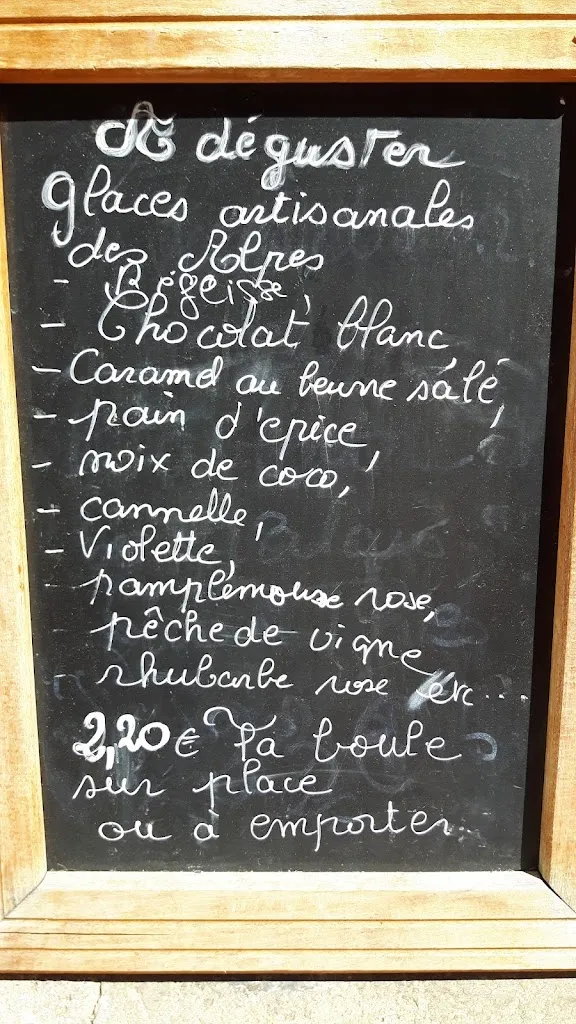 À déguster
glaces artisanales
des Alpes
- Réglisse,
- Chocolat blanc,
- Caramel au beurre salé,
- pain d'epice,
- noix de coco,
- cannelle,
- Violette,
- pamplemousse rose,
- pêche de vigne
- rhubarbe rose etc...
2,20€ la boule
sur place
ou à emporter..